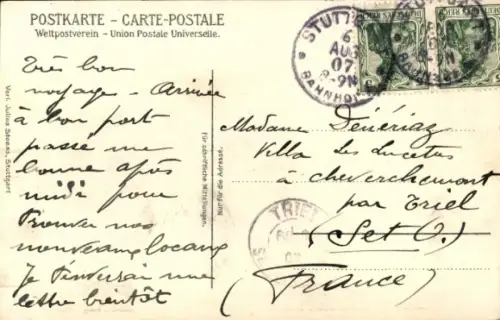 POSTKARTE – CARTE-POSTALE
Weltpostverein – Union Postale Universelle.
STUTTG
6
AUG
07
8-9N
BAHNHOF
DEUTSCHES REICH
DEUTSCHES REICH
Très bon
voyage – Arrivée
à bon port
passé une
bonne après
midi pour
trouver nos
nouveaux
Je une
lettre bientôt
Verl. Julius Stuttgart
Für schriftliche Mitteilungen.
Nur für die Adresse.
Madame Dénériaz
Villa Les
à cheverchemont
par Triel
(Set O.)
(France)
TRIEL